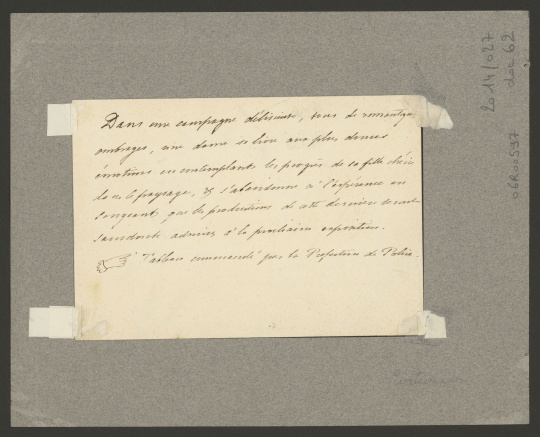 Dans une campagne délicieuse, sous de romantiques
ombrages, une dame se livre aux plus douces
émotions en contemplant les progrès de sa fille chérie
dans le paysage, & s'abandonne à l'espérance en
songeant que les productions de cette dernière seront
sans doute admises à la prochaine exposition.
Tableau commandé par la Préfecture de Police.
2014/027
doc 62
06R00597